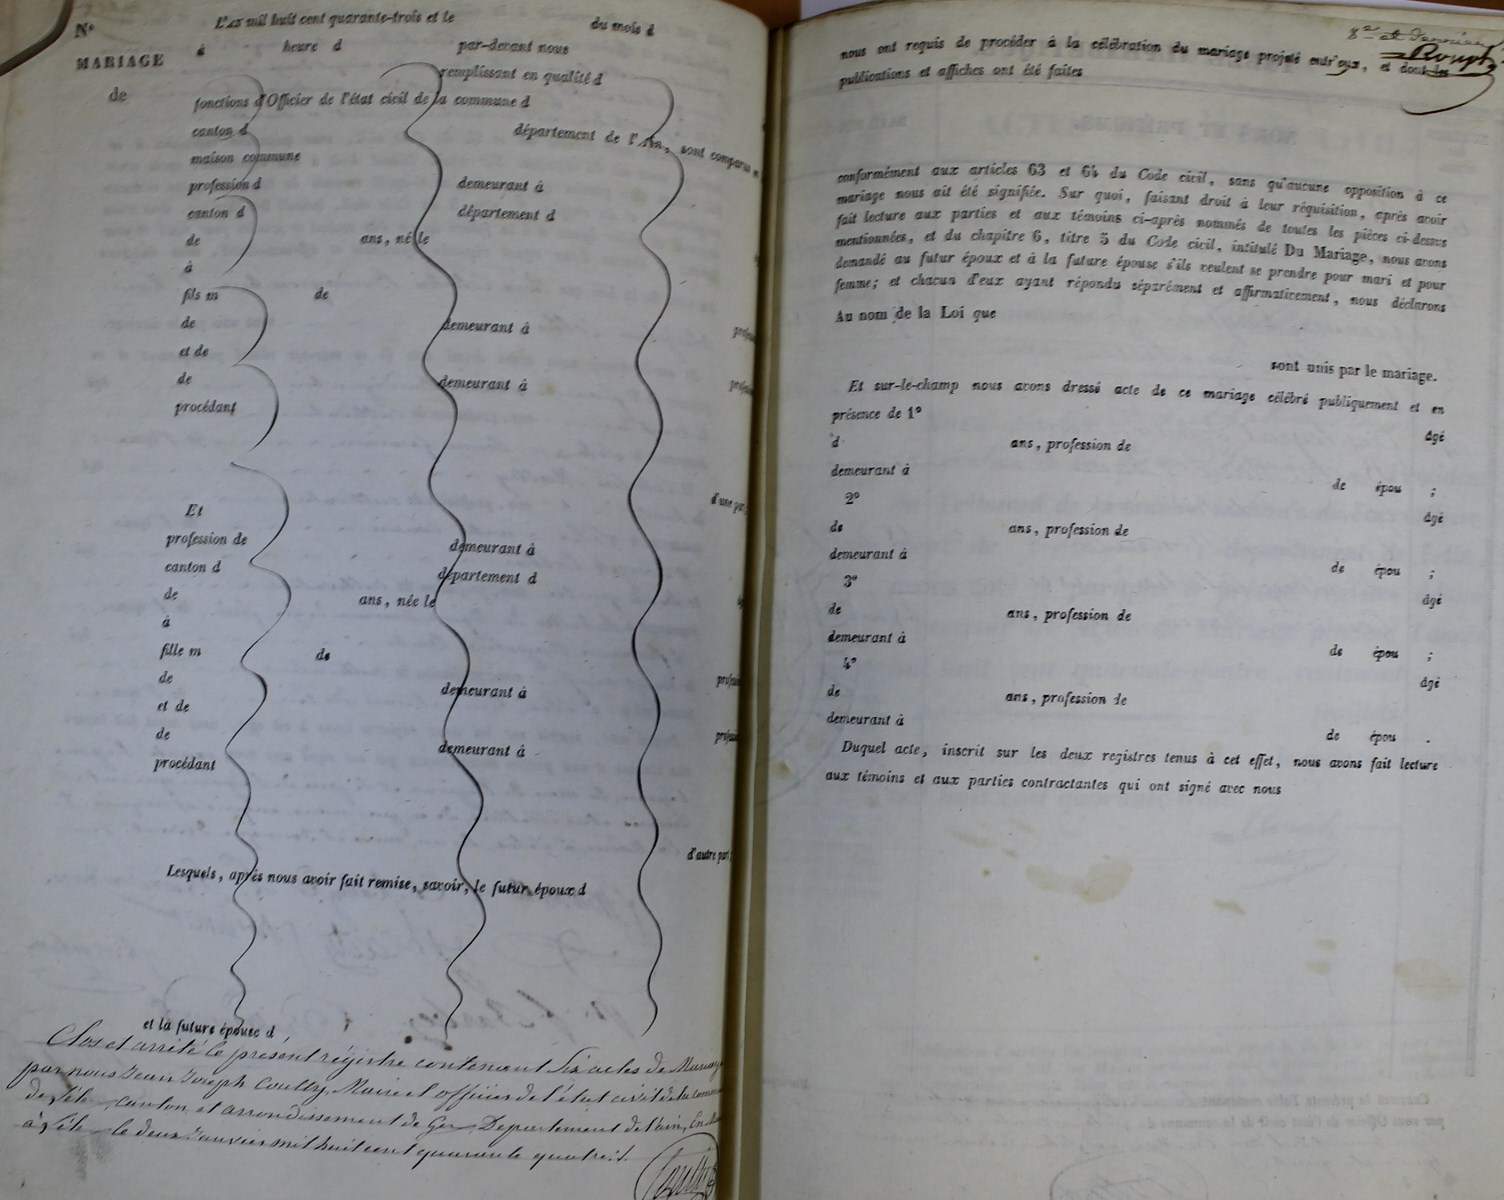 Nº
MARIAGE
de
L'AN mil huit cent quarante-trois et le du mois d
à heure d par-devant nous
remplissant en qualité d
fonctions d'Officier de l'état civil de la commune d
canton d département de l'Ain, sont comparus
maison commune
profession d demeurant à
canton d département d
de ans, né le
à
fils m de
de demeurant à
et de
de demeurant à
procédant
d'une par
Et
profession de demeurant à
canton d département d
de ans, née le
à
fille m de
de demeurant à
et de
de demeurant à
procédant
d'autre part
Lesquels, après nous avoir fait remise, savoir, le futur époux d
et la future épouse d
Clos et arrêté le présent régistre contenant Six actes de
par nous Jean Joseph Coutty, Maire et officier de l'état civil de la
de canton et arrondissement de Gex, Département de l'ain,
à le deux Janvier mil huit cent quarante quatre
8e et dernier
nous ont requis de procéder à la célébration du mariage projeté entr'eux, et dont les
publications et affiches ont été faites
conformément aux articles 63 et 64 du Code civil, sans qu'aucune opposition à ce
mariage nous ait été signifiée. Sur quoi, faisant droit à leur réquisition, après avoir
fait lecture aux parties et aux témoins ci-après nommés de toutes les pièces ci-dessus
mentionnées, et du chapitre 6, titre 5 du Code civil, intitulé Du Mariage, nous avons
demandé au futur époux et à la future épouse s'ils veulent se prendre pour mari et pour
femme; et chacun d'eux ayant répondu séparément et affirmativement, nous déclarons
Au nom de la Loi que
sont unis par le mariage.
Et sur-le-champ nous avons dressé acte de ce mariage célébré publiquement et en
présence de 1º âgé
d ans, profession de
demeurant à de épou ;
2º âgé
de ans, profession de
demeurant à de épou ;
3º âgé
de ans, profession de
demeurant à de épou ;
4º âgé
de ans, profession de
demeurant à de épou .
Duquel acte, inscrit sur les deux registres tenus à cet effet, nous avons fait lecture
aux témoins et aux parties contractantes qui ont signé avec nous